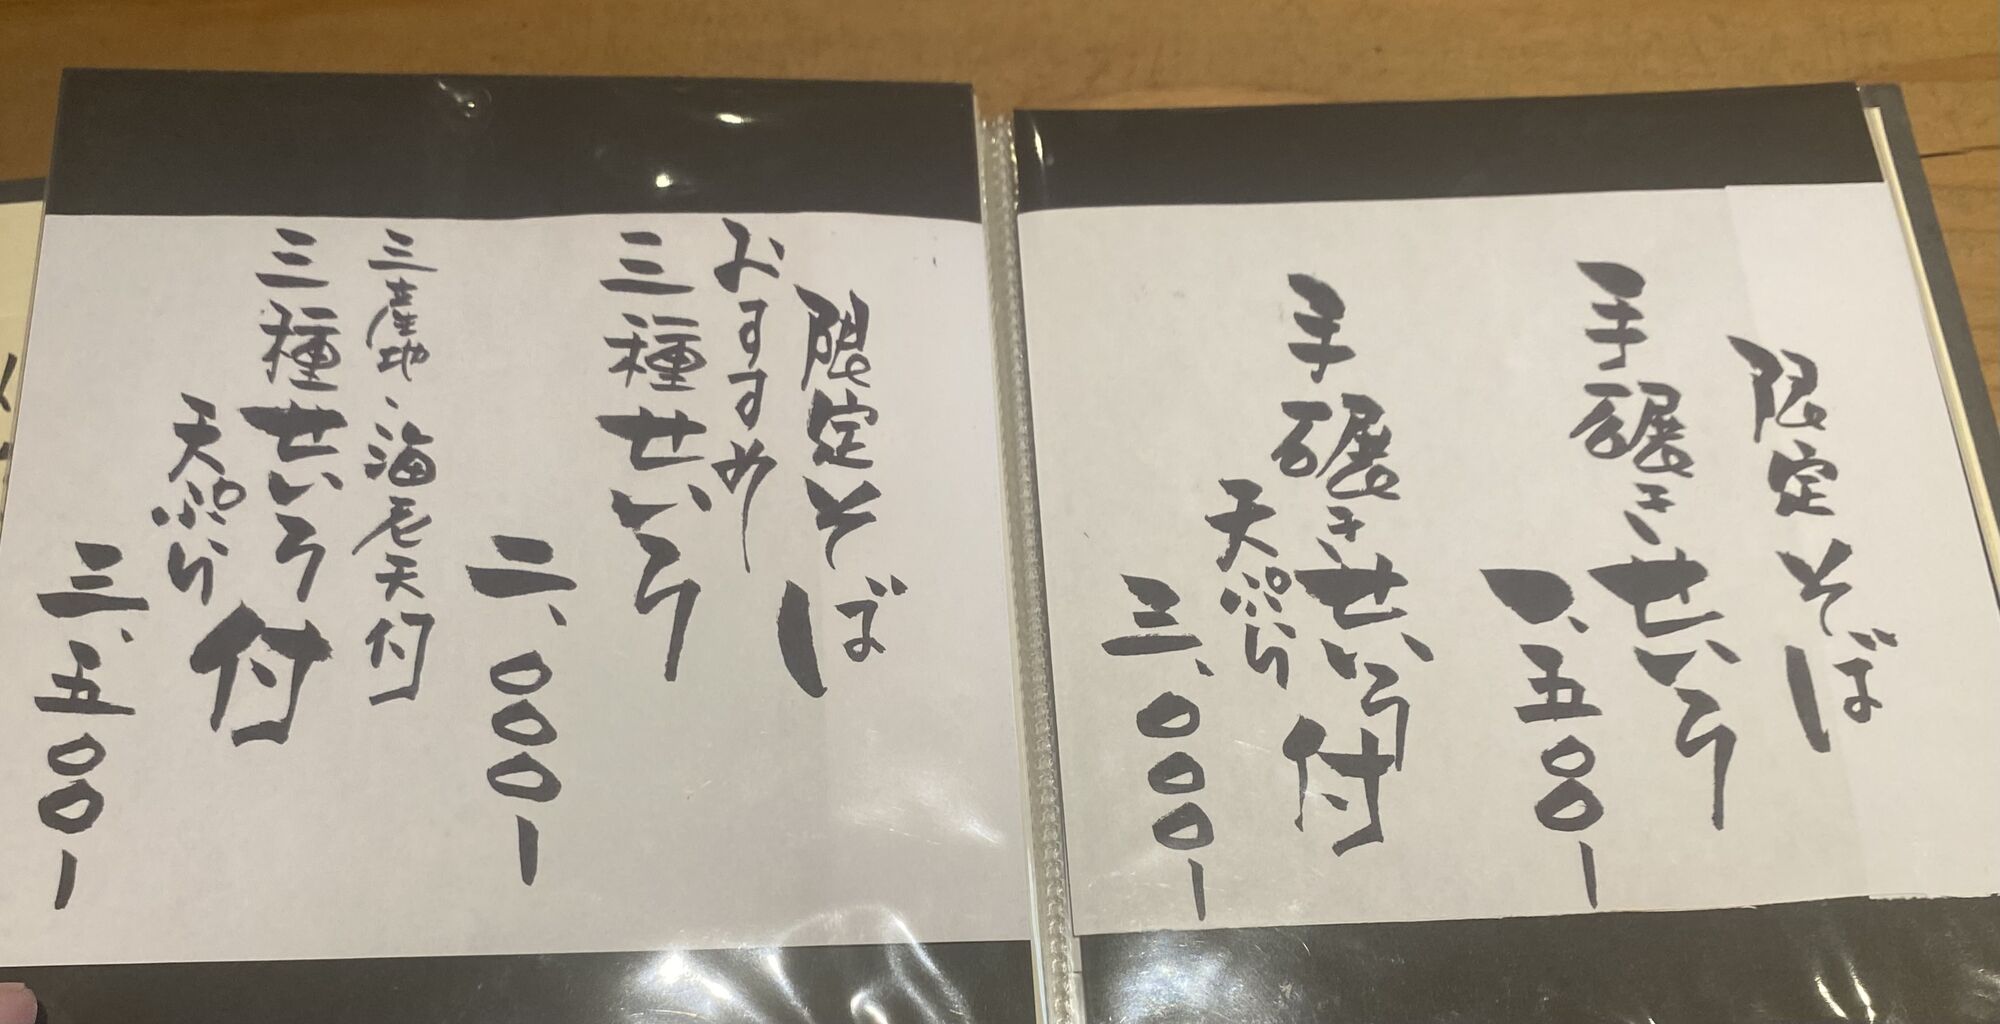 限定そば
手碾きせいろ
一、五〇〇ー
手碾きせいろ付
天ぷら
三、〇〇〇ー
限定そば
おすすめ
三種せいろ
二、〇〇〇ー
三産地、海老天付
三種せいろ付
天ぷら
三、五〇〇ー